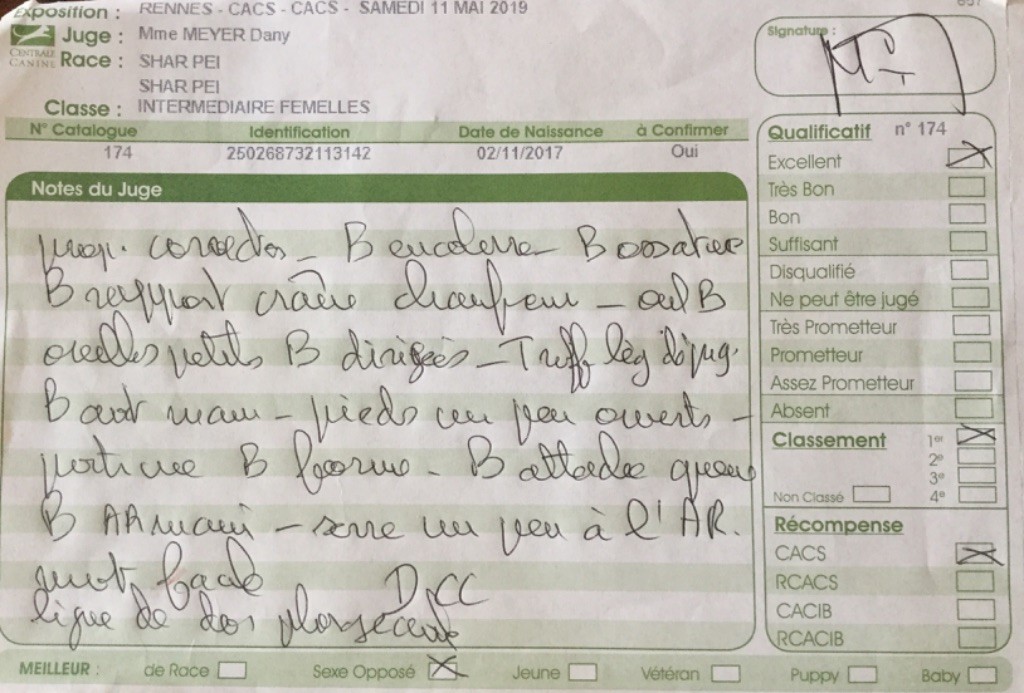 Exposition : RENNES - CACS - CACS - SAMEDI 11 MAI 2019
Juge : Mme MEYER Dany
CENTRALE CANINE
Race : SHAR PEI
SHAR PEI
Classe : INTERMEDIAIRE FEMELLES
N° Catalogue Identification Date de Naissance à Confirmer
174 250268732113142 02/11/2017 Oui
Notes du Juge
prop. correctes - B encolure - B ossature
B rapport crâne chanfrein - œil B
oreilles petites B dirigées - Truffe lég dépig.
B avt main - pieds un peu ouverts -
poitrine B forme - B attache queue
B AR main - serre un peu à l'AR.
ligne de dos plongeante
Signature :
Qualificatif n° 174
Excellent
Très Bon
Bon
Suffisant
Disqualifié
Ne peut être jugé
Très Prometteur
Prometteur
Assez Prometteur
Absent
Classement 1er
2e
3e
Non Classé 4e
Récompense
CACS
RCACS
CACIB
RCACIB
MEILLEUR : de Race Sexe Opposé Jeune Vétéran Puppy Baby